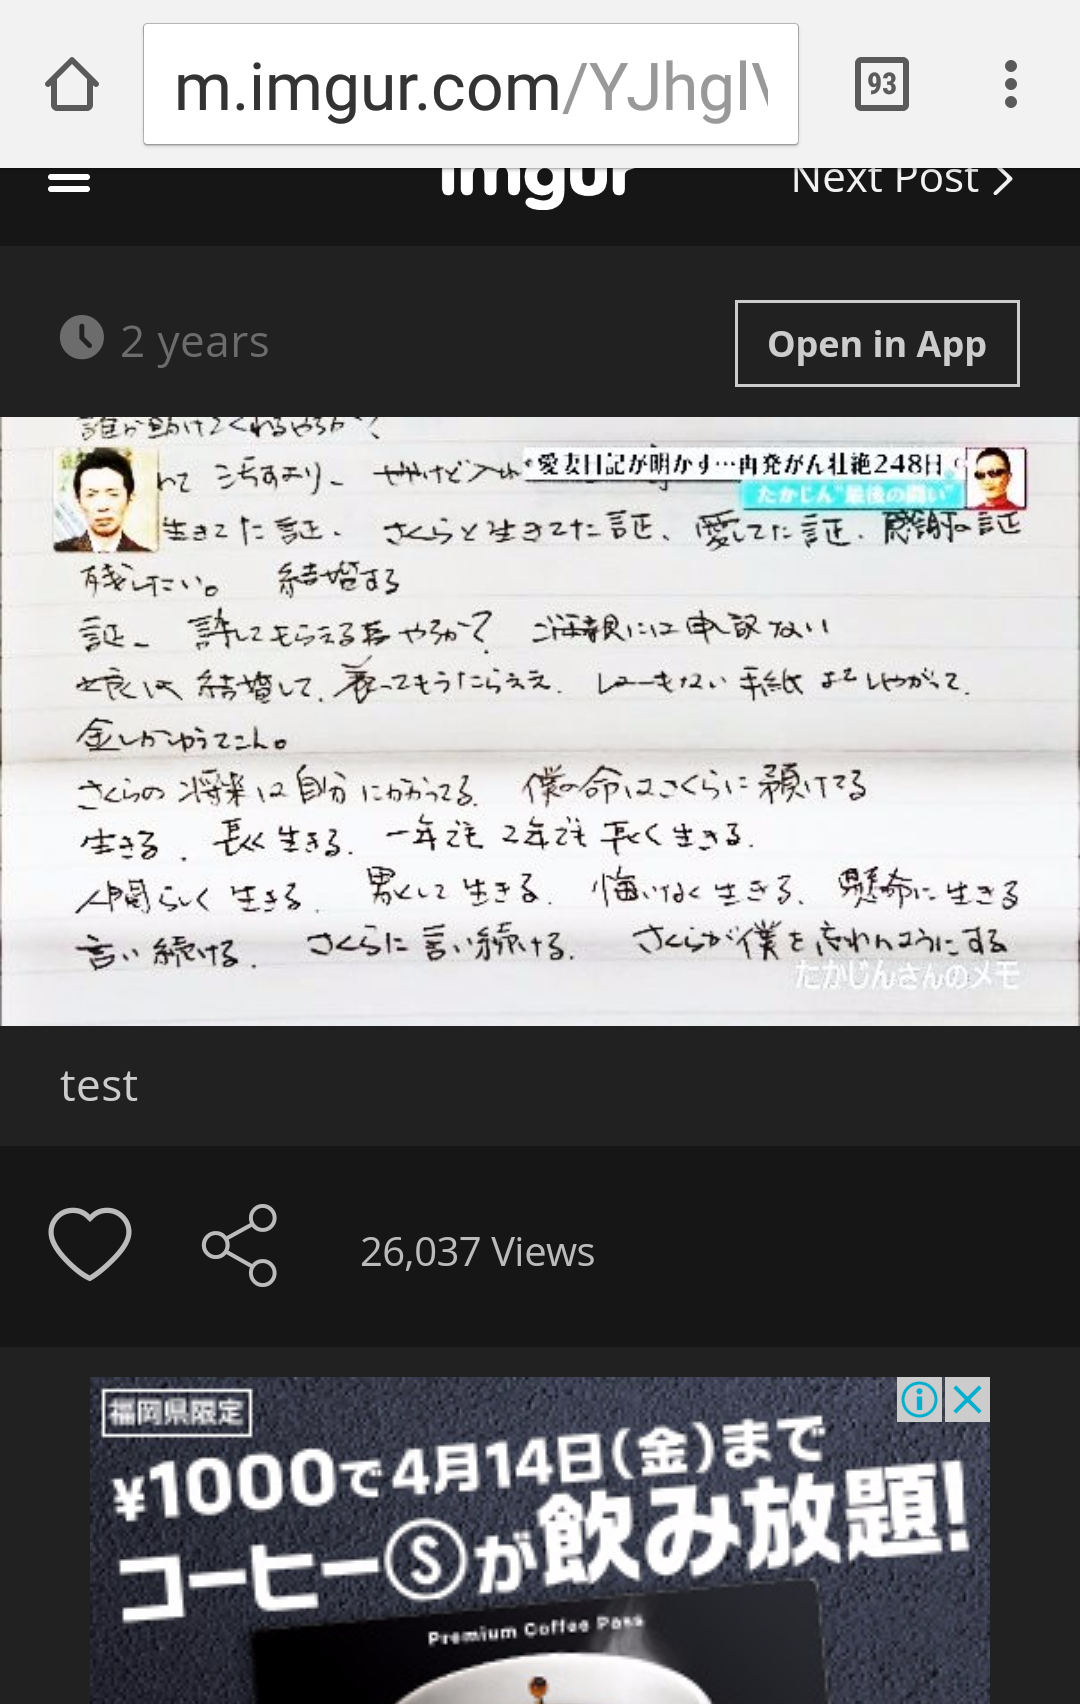 m.imgur.com/YJhgl
93
imgur
Next Post
2 years
Open in App
誰か助けてくれるやろか?
愛妻日記が明かす…再発がん壮絶248日
たかじん"最後の闘い"
生きてた証、さくらと生きてた証、愛してた証、感謝の証
残したい。 結婚する
証、許してもらえる やろか? ご両親には申し訳ない
結婚して、 ってもうたらええ、 しょーもない 手紙 よこしやがって、
金しか ゆうてこん。
さくらの将来は自分にかかってる、 僕の命はさくらに預けてる
生きる、長く生きる、一年でも2年でも長く生きる、
人間らしく生きる、 男として生きる、 悔いなく生きる、 懸命に生きる
言い続ける、 さくらに言い続ける、 さくらが僕を忘れんようにする
たかじんさんのメモ
test
26,037 Views
福岡県限定
¥1000で4月14日(金)まで
コーヒーⓈが飲み放題!
Premium Coffee Pass